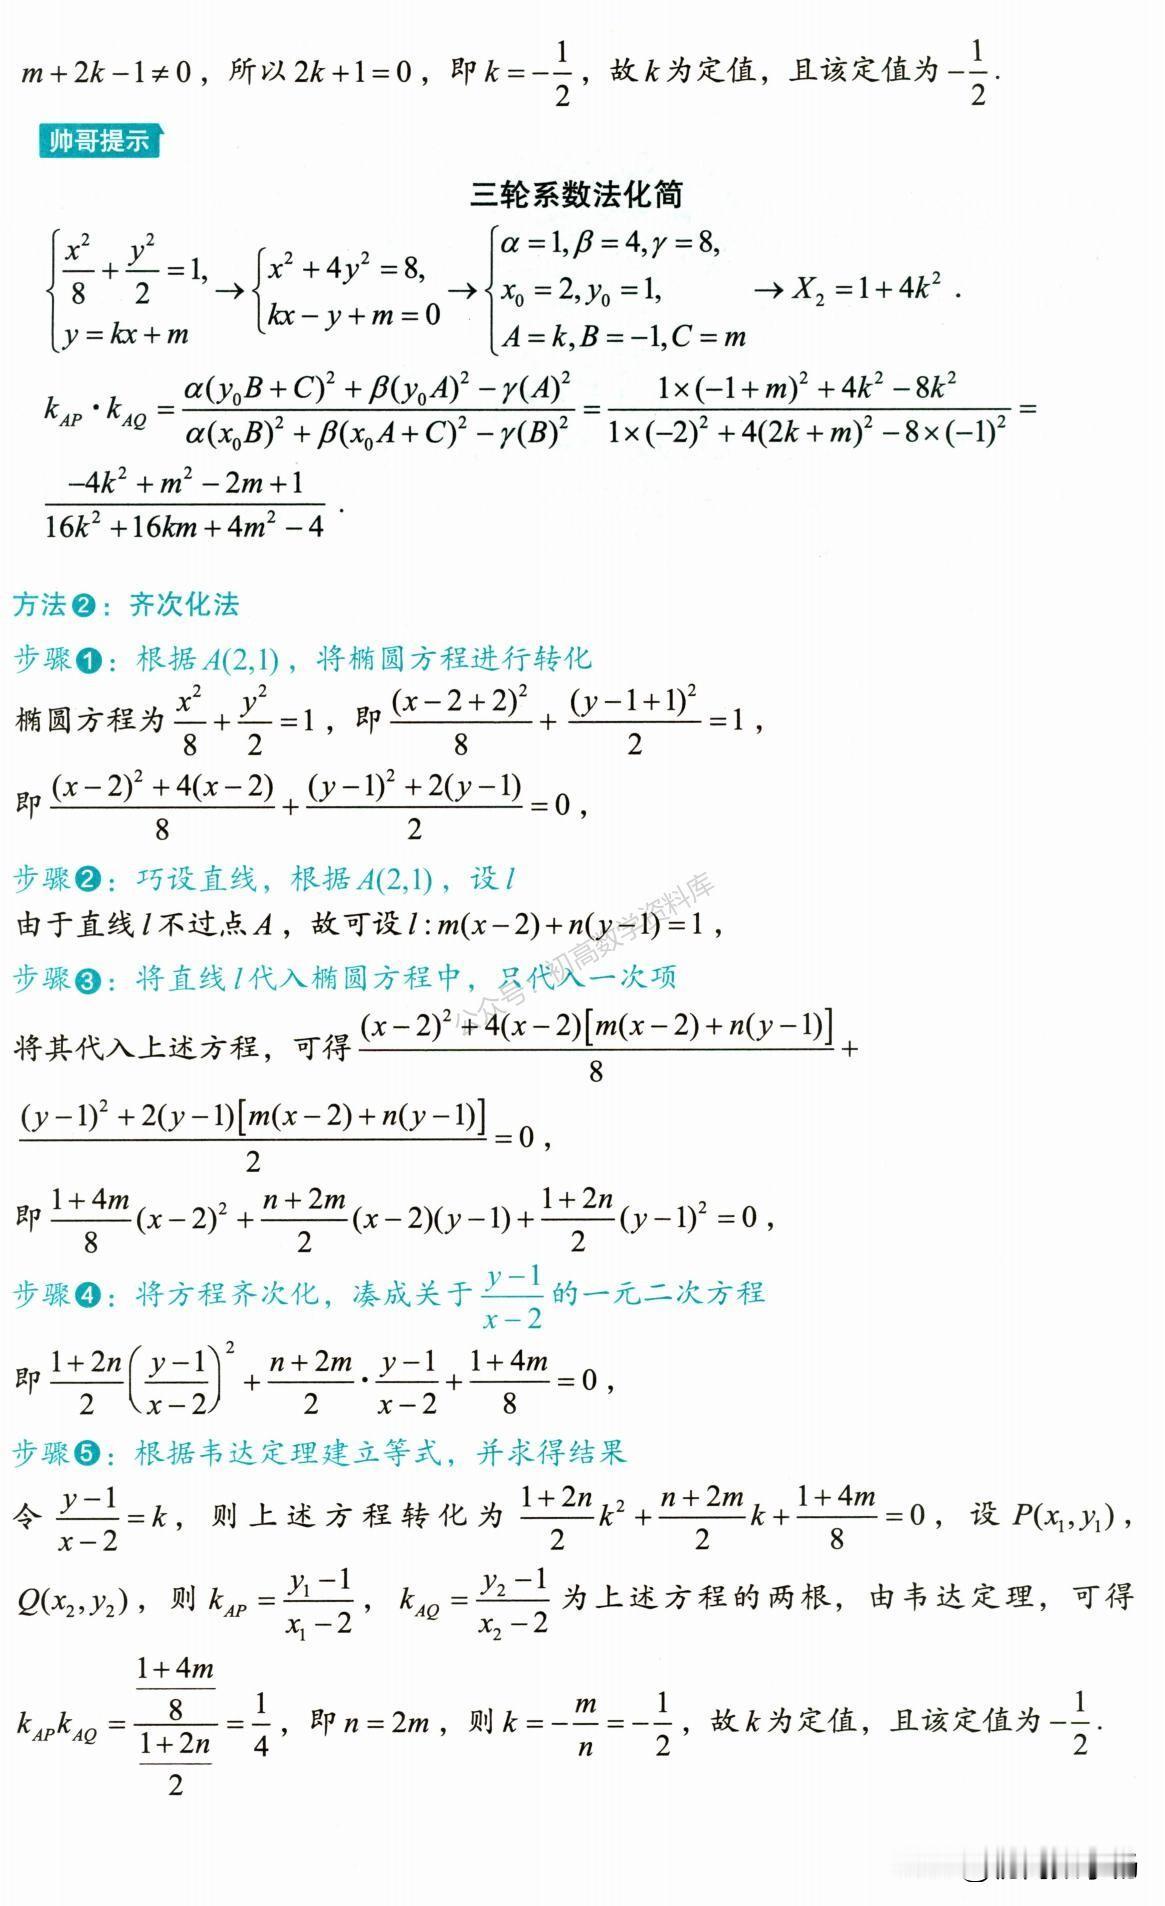 m+2k-1≠0，所以2k+1=0，即k=-1/2，故k为定值，且该定值为-1/2.
帅哥提示
三轮系数法化简
{x²/8+y²/2=1, y=kx+m → {x²+4y²=8, kx-y+m=0 → {α=1,β=4,γ=8, x₀=2,y₀=1, A=k,B=-1,C=m → X₂=1+4k².
k_AP·k_AQ=(α(y₀B+C)²+β(y₀A)²-γ(A)²)/(α(x₀B)²+β(x₀A+C)²-γ(B)²)=(1×(-1+m)²+4k²-8k²)/(1×(-2)²+4(2k+m)²-8×(-1)²)=
(-4k²+m²-2m+1)/(16k²+16km+4m²-4).
方法❷：齐次化法
步骤❶：根据A(2,1)，将椭圆方程进行转化
椭圆方程为x²/8+y²/2=1，即(x-2+2)²/8+(y-1+1)²/2=1，
即((x-2)²+4(x-2))/8+((y-1)²+2(y-1))/2=0，
步骤❷：巧设直线，根据A(2,1)，设l
由于直线l不过点A，故可设l:m(x-2)+n(y-1)=1，
公众号：初高数学资料库
步骤❸：将直线l代入椭圆方程中，只代入一次项
将其代入上述方程，可得((x-2)²+4(x-2)[m(x-2)+n(y-1)])/8+
((y-1)²+2(y-1)[m(x-2)+n(y-1)])/2=0，
即(1+4m)/8(x-2)²+(n+2m)/2(x-2)(y-1)+(1+2n)/2(y-1)²=0，
步骤❹：将方程齐次化，凑成关于(y-1)/(x-2)的一元二次方程
即(1+2n)/2((y-1)/(x-2))²+(n+2m)/2·(y-1)/(x-2)+(1+4m)/8=0，
步骤❺：根据韦达定理建立等式，并求得结果
令(y-1)/(x-2)=k，则上述方程转化为(1+2n)/2k²+(n+2m)/2k+(1+4m)/8=0，设P(x₁,y₁)，
Q(x₂,y₂)，则k_AP=(y₁-1)/(x₁-2)，k_AQ=(y₂-1)/(x₂-2)为上述方程的两根，由韦达定理，可得
k_APk_AQ=((1+4m)/8)/((1+2n)/2)=1/4，即n=2m，则k=-m/n=-1/2，故k为定值，且该定值为-1/2.